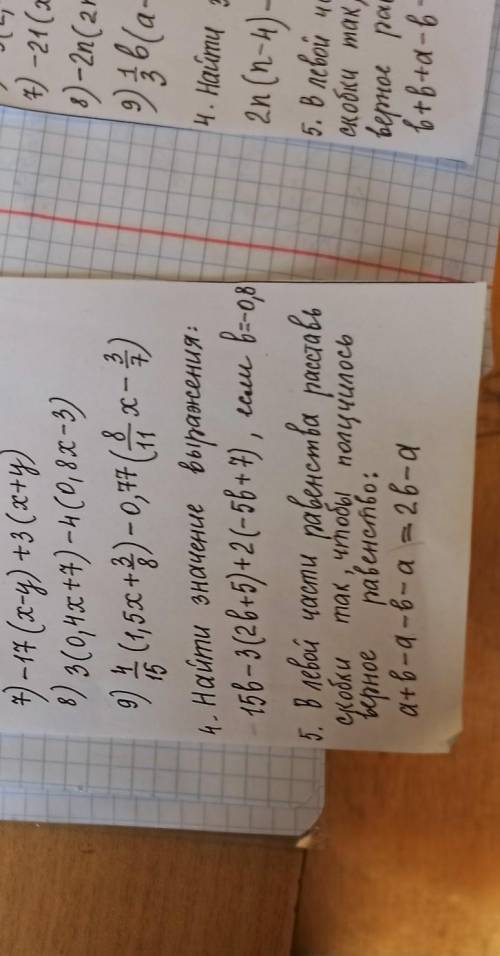 7) -21(x
8) -2n(2n
9) 1/3 b(a-
4. Найти з
2n(n-4)-
5. В левой ча
скобки так,
верное рав
b+b+a-b-
7) -17(x-y)+3(x+y)
8) 3(0,4x+7)-4(0,8x-3)
9) 4/15 (1,5x+3/8)-0,77(8/11 x-3/7)
4. Найти значение выражения:
15b-3(2b+5)+2(-5b+7), если b=-0,8
5. В левой части равенства расставь
скобки так, чтобы получилось
верное равенство:
a+b-a-b-a=2b-a